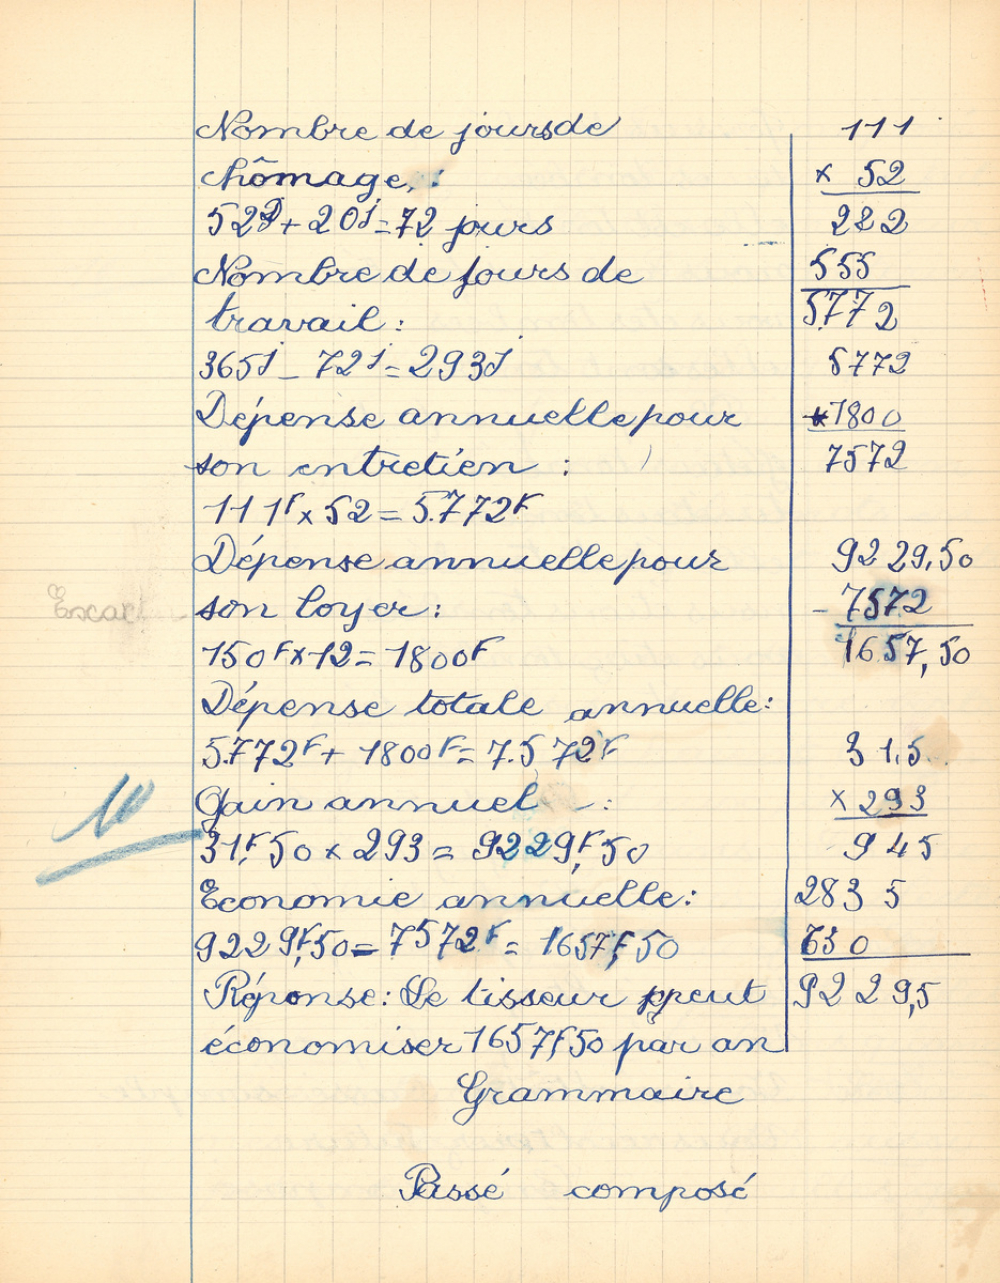 Nombre de jours de
chômage :
52j + 20j = 72 jours
Nombre de jours de
travail :
365j – 72j = 293j
Dépense annuelle pour
son entretien :
111F x 52 = 5.772F
Dépense annuelle pour
son loyer :
150F x 12 = 1800F
Dépense totale annuelle :
5.772F + 1800F = 7.572F
Gain annuel :
31F,50 x 293 = 9229F,50
Economie annuelle :
9229F,50 – 7572F = 1657F,50
Réponse : Le tisseur peut
économiser 1657F,50 par an
111
x 52
222
555
5772
5772
+1800
7572
9229,50
- 7572
1657,50
31,5
x 293
945
2835
630
9229,5
Exact
10
Grammaire
Passé composé